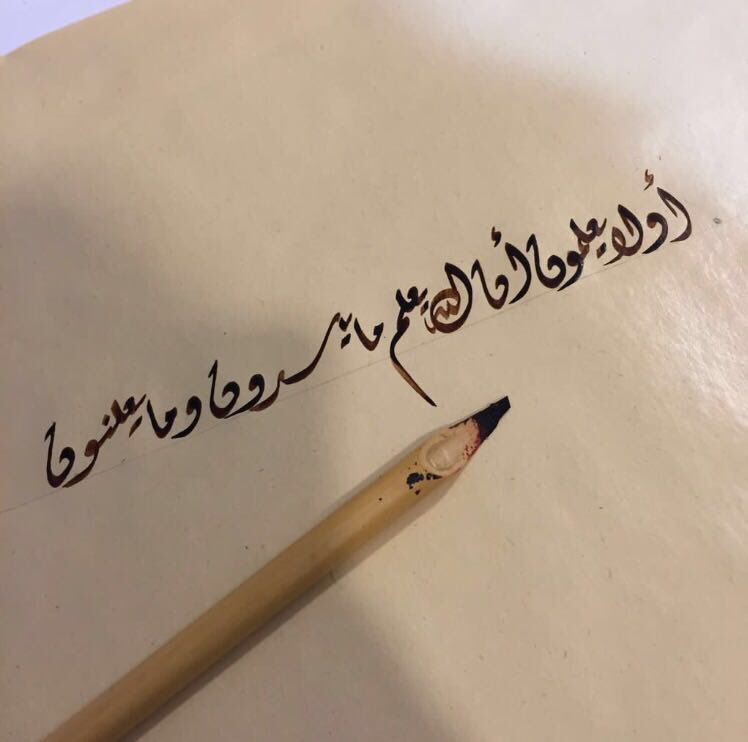 أولا يعلمون أن الله يعلم ما يسرون وما يعلنون